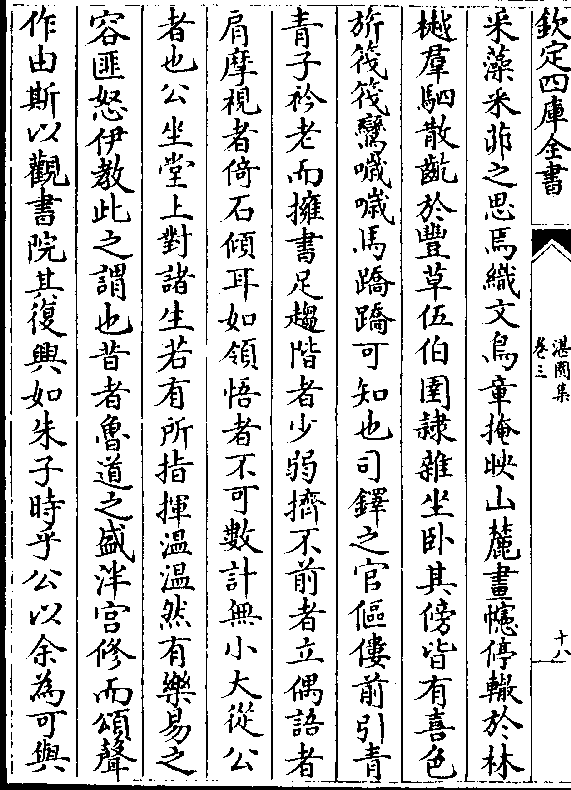 欽定四庫全書
湛園集
卷三
十八
采藻采茆之思焉織文鳥章掩映山麓畫幰停轍於林
樾羣駟散齕於豐草伍伯圉隸雜坐卧其傍皆有喜色
旂筏筏鸞噦噦馬蹻蹻可知也司鐸之官傴僂前引青
青子衿老而擁書足趨階者少弱擠不前者立偶語者
肩摩視者倚石傾耳如領悟者不可數計無小大從公
者也公坐堂上對諸生若有所指揮温温然有樂易之
容匪怒伊教此之謂也昔者魯道之盛泮宫修而頌聲
作由斯以觀書院其復興如朱子時乎公以余為可與